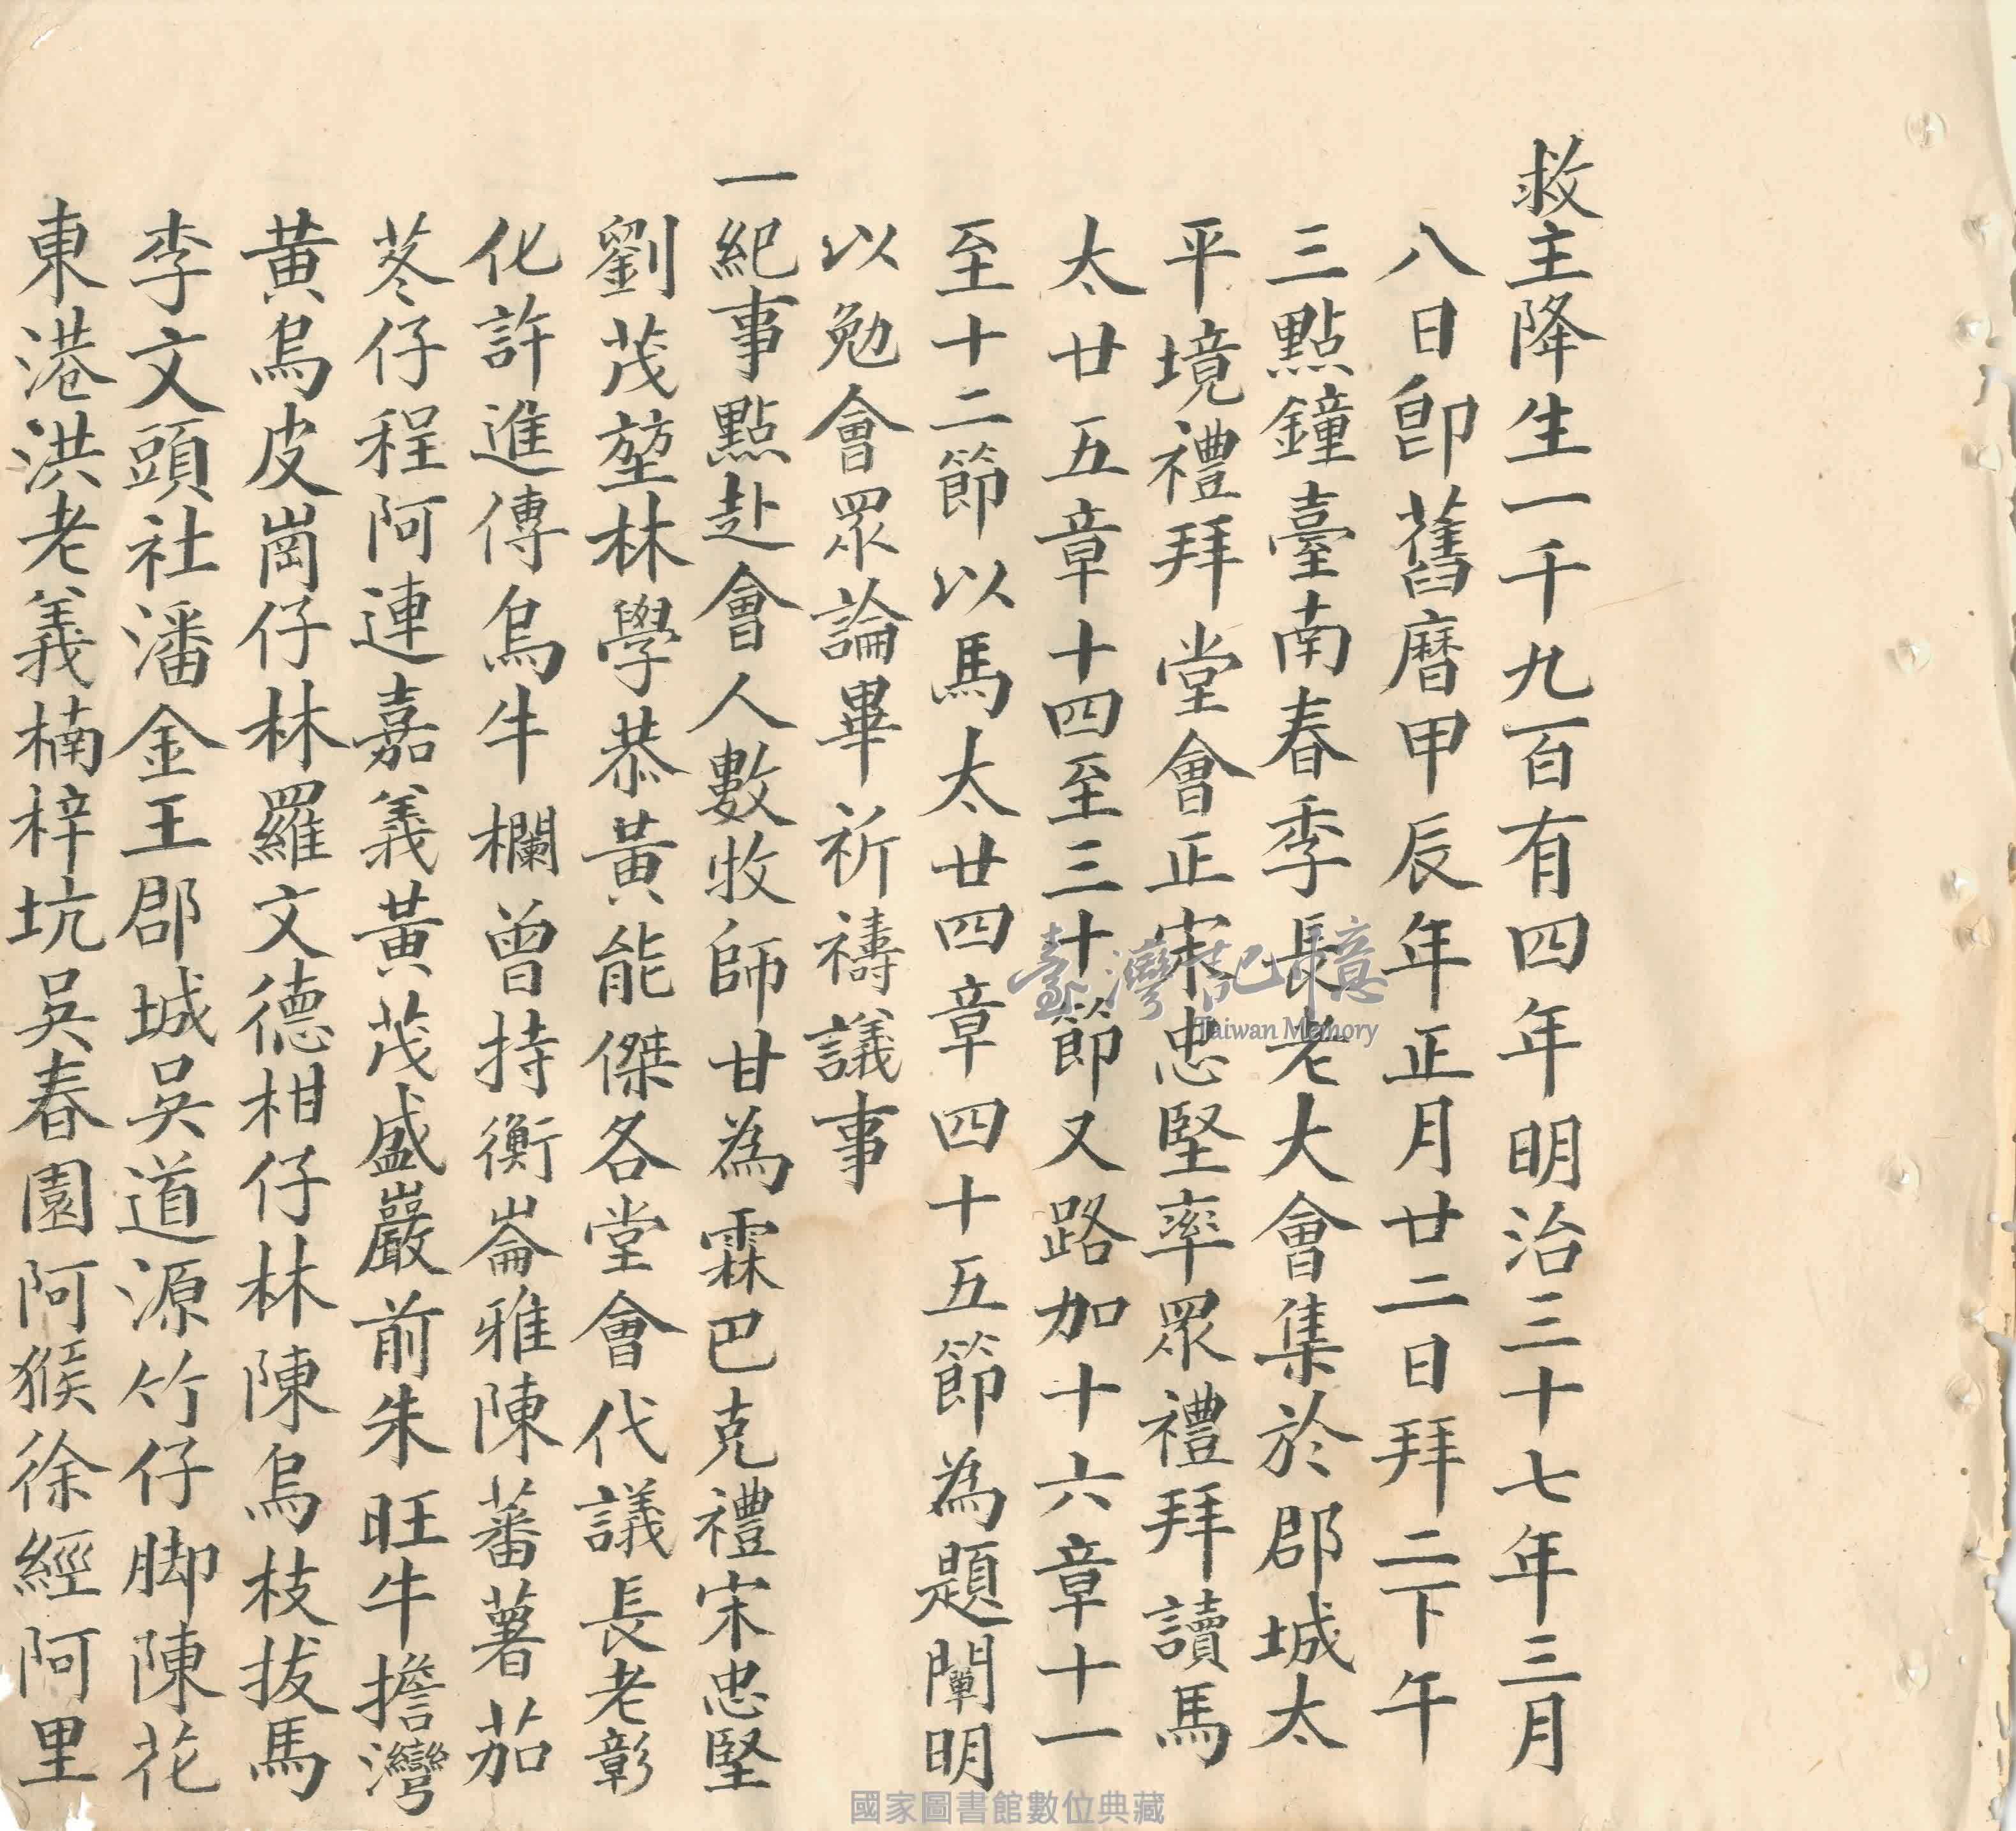 救主降生一千九百有四年明治三十七年三月
八日卽舊曆甲辰年正月廿二日拜二下午
三點鐘臺南春季長老大會集於郡城太
平境禮拜堂會正宋忠堅率眾禮拜讀馬
太廿五章十四至三十節又路加十六章十一
至十二節以馬太廿四章四十五節為題闡明
以勉會眾論畢祈禱議事
一紀事點赴會人數牧師甘為霖巴克禮宋忠堅
劉茂堃林學恭黃能傑各堂會代議長老彰
化許進傳烏牛欄曾持衡崙雅陳蕃薯茄
苳仔程阿連嘉義黃茂盛巖前朱旺牛擔灣
黃烏皮崗仔林羅文德柑仔林陳烏枝拔馬
李文頭社潘金王郡城吳道源竹仔脚陳花
東港洪老義楠梓坑吳春園阿猴徐經阿里
臺灣記憶
Taiwan Memory
國家圖書館數位典藏